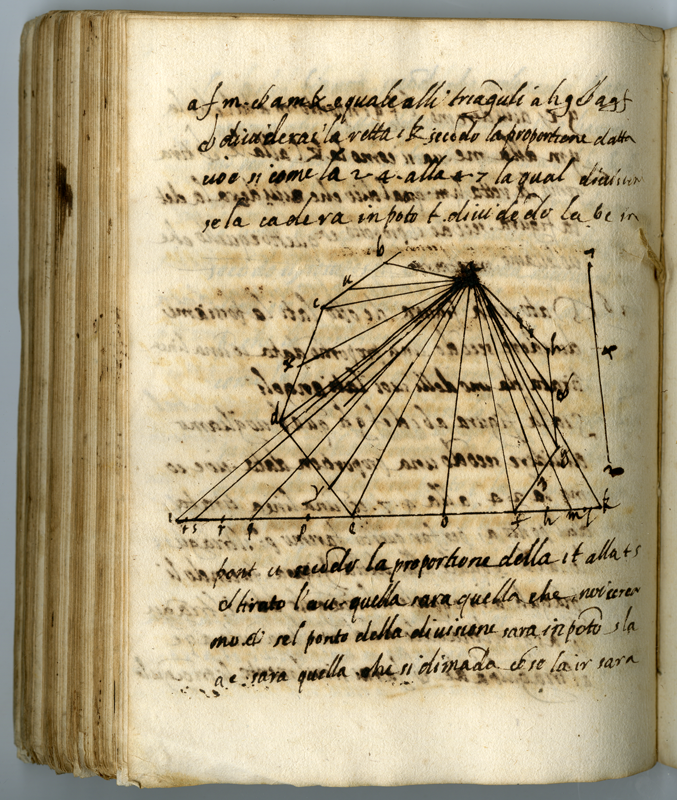 a f m. & a m k equale alli triāguli a h g & a g f
& dividerai la retta i k secōdo la proportione datta
cioe si come la 2 4 alla 4 7 la qual divisione
se la cadera in pōto t. dividēdo la b c in
b
u
c
z
d
y
h
g
i t s r q p e o f h m l k
pont u secōdo la proportione della i t alla t s
& tirato l'a u quella sara quella che
mo & sel ponto della divisione sara in pōto s la
a c sara quella che si dimāda & se la i r sara